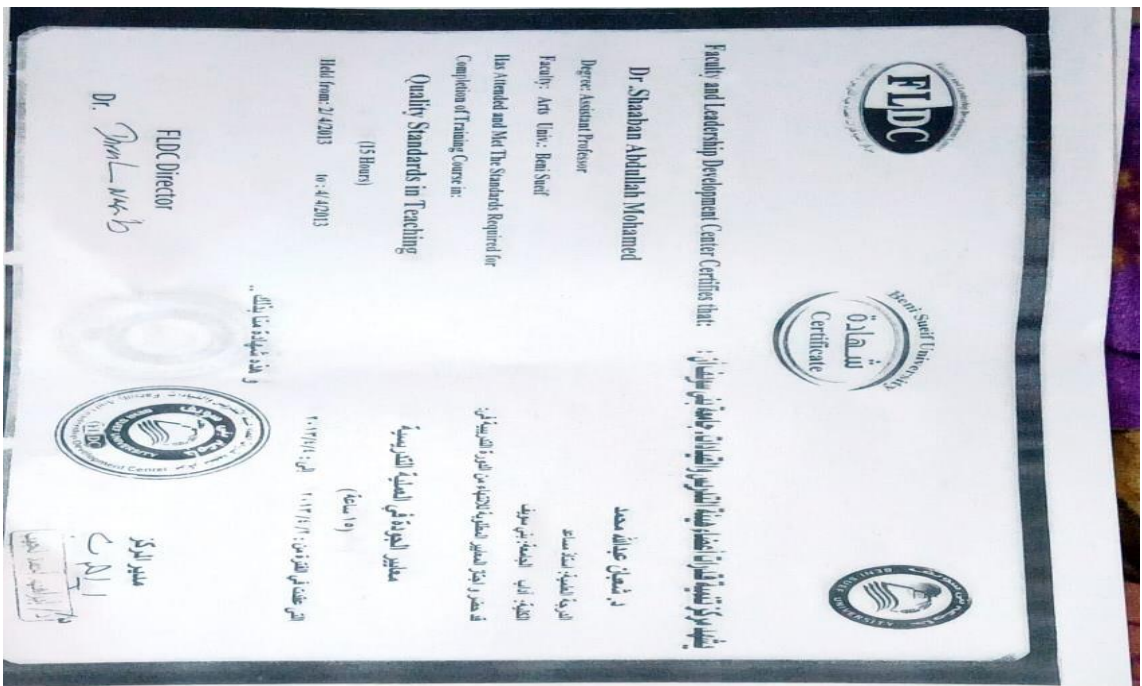 FLDC
Beni Sueif University
شهادة
Certificate
BENI SUEF UNIVERSITY
Faculty and Leadership Development Center Certifies that:
Dr .Shaaban Abdullah Mohamed
Degree: Assistant Professor
Faculty: Arts Univ.: Beni Sueif
Has Attended and Met The Standards Required for
Completion of Training Course in:
Quality Standards in Teaching
(15 Hours)
Held from: 2/4/2013 to: 4/4/2013
FLDC Director
Dr.
يشهد مركز تنمية قدرات أعضاء هيئة التدريس والقيادات بجامعة بني سويف أن :
د. شعبان عبدالله محمد
الدرجة العلمية: أستاذ مساعد
الكلية: آداب الجامعة: بني سويف
قد حضر و اجتاز المعايير المطلوبة للانتهاء من الدورة التدريبية في:
معايير الجودة في العملية التدريسية
(١٥ ساعة)
التي عقدت في الفترة من: ٢٠١٣/٤/٢ إلى: ٢٠١٣/٤/٤
و هذه شهادة منا بذلك ..
مدير المركز
جامعة بني سويف
BENI SUEF UNIVERSITY
FLDC